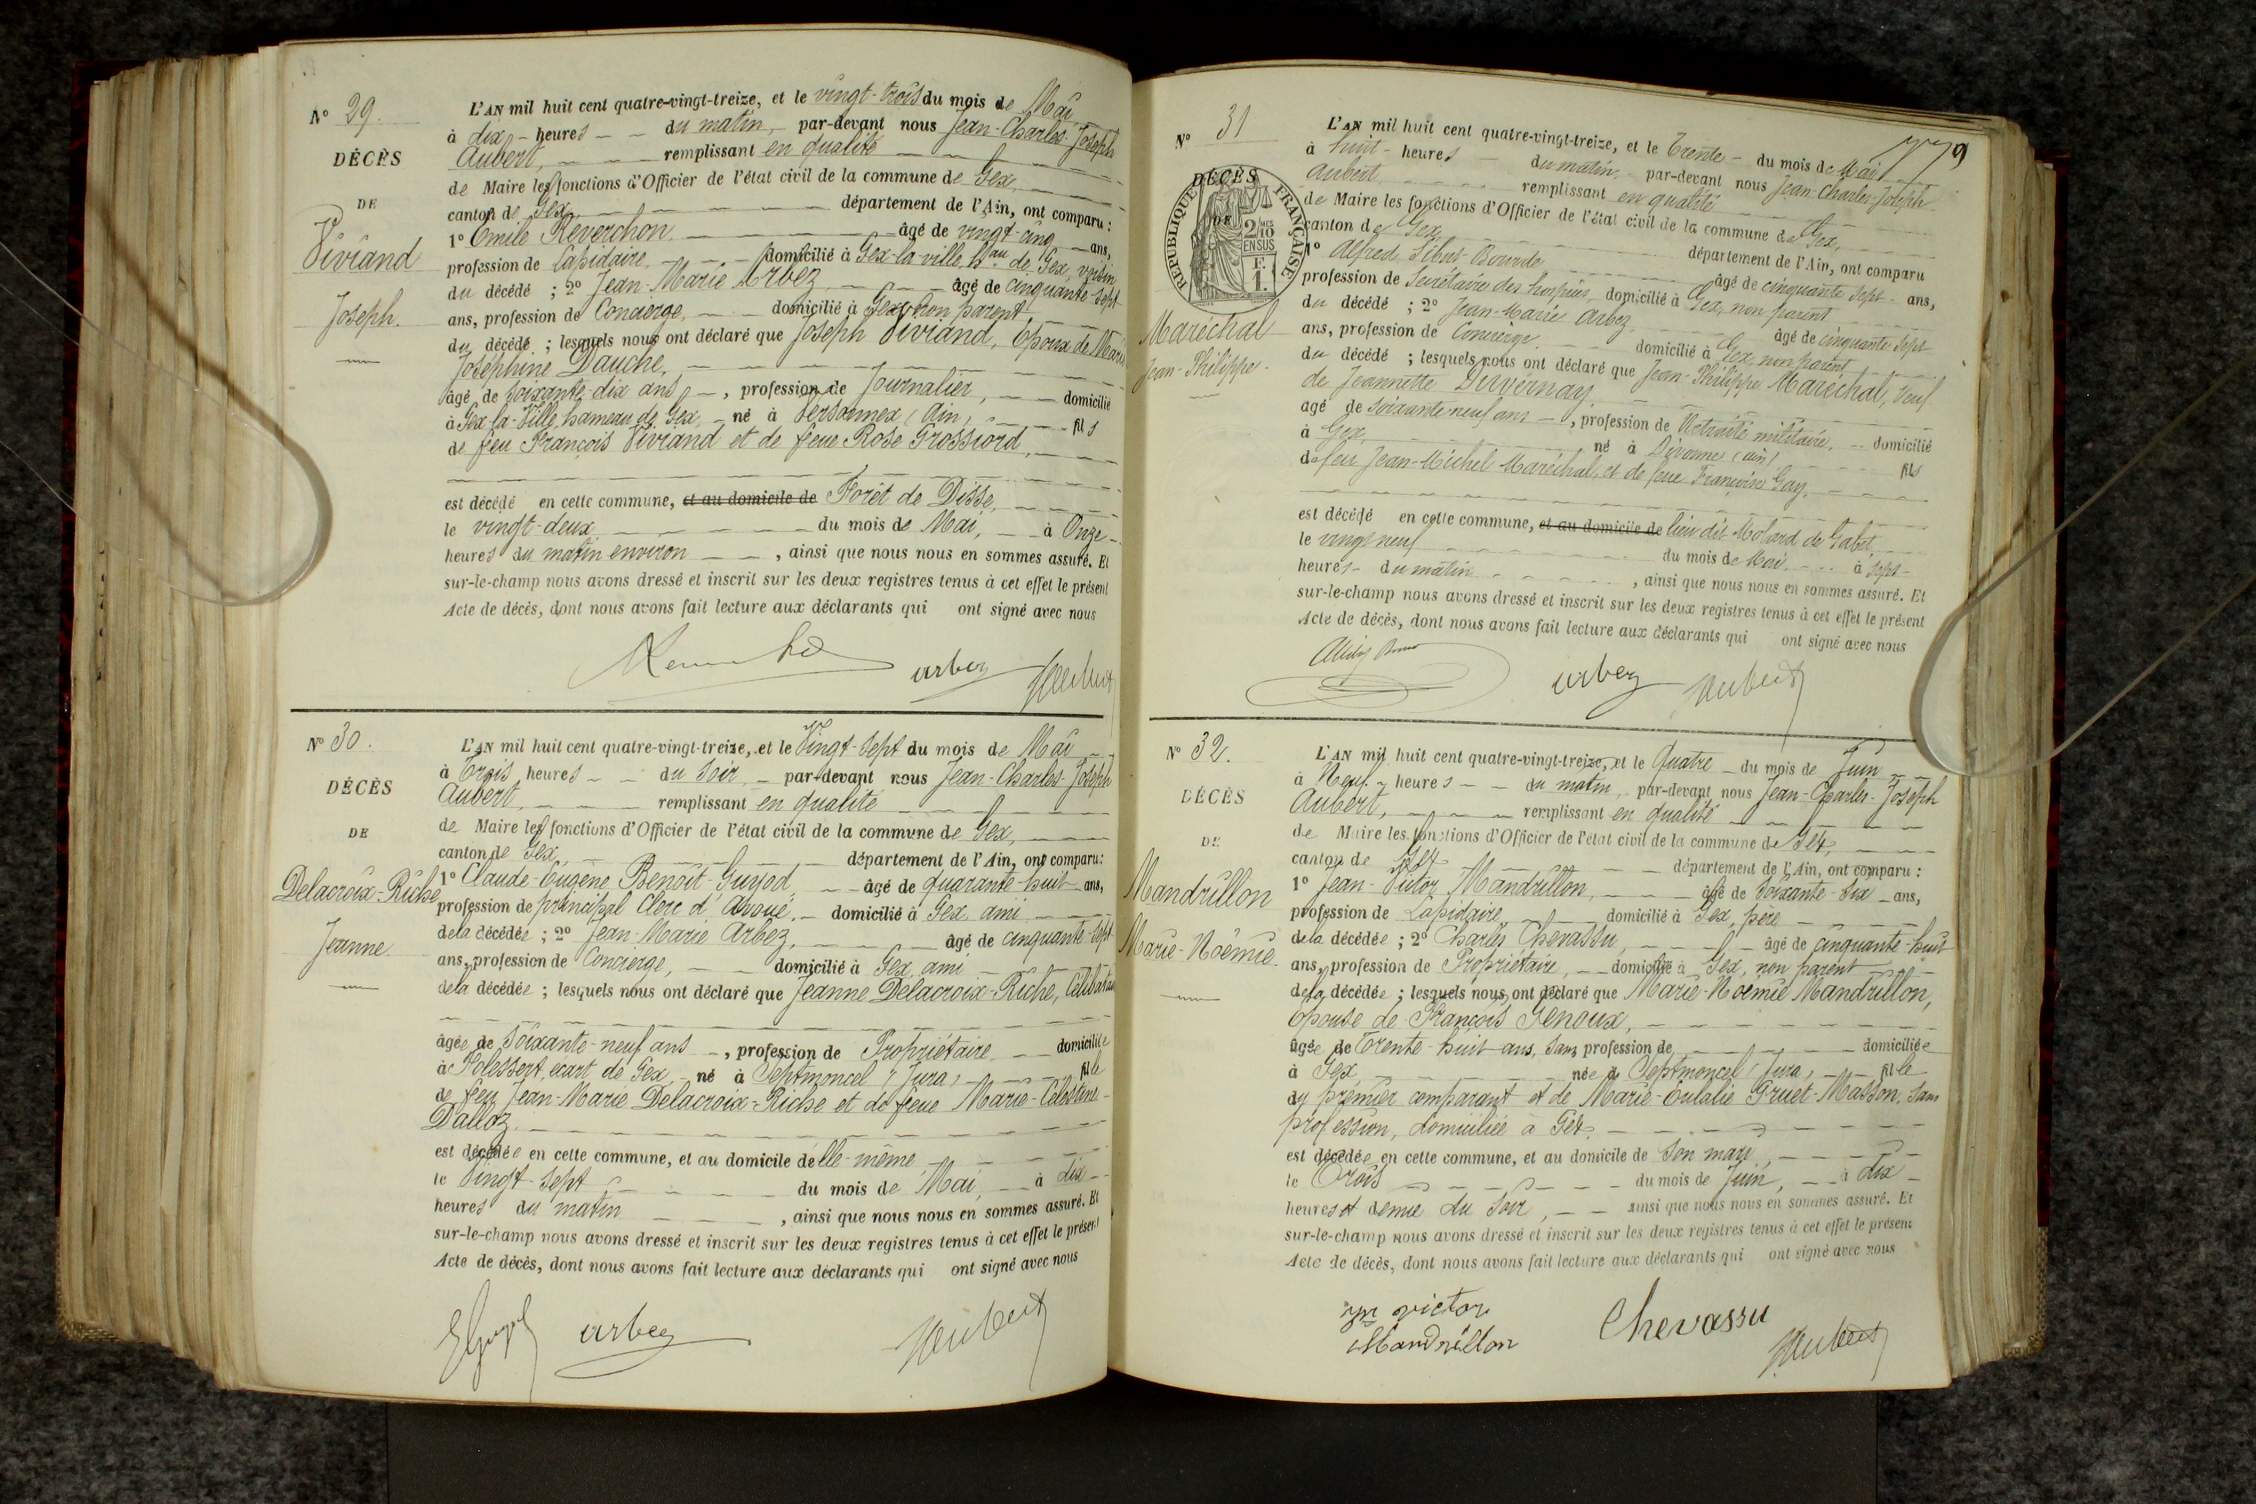 N° 29.
DÉCÈS
DE
Viviand
Joseph.
L'AN mil huit cent quatre-vingt-treize, et le vingt-trois du mois de Mai
à dix heures du matin, par-devant nous Jean-Charles-Joseph
Aubert, remplissant en qualité
de Maire les fonctions d'Officier de l'état civil de la commune de Gex,
canton de Gex, département de l'Ain, ont comparu :
1° Emile Réverchon âgé de vingt-cinq ans,
profession de Lapidaire, domicilié à Gex-la-ville, hau de Gex, voisin
du décédé ; 2° Jean-Marie Arbez, âgé de cinquante-sept
ans, profession de Concierge, domicilié à Gex, non parent
du décédé ; lesquels nous ont déclaré que Joseph Viviand, Epoux de Marie
Joséphine Dauche,
âgé de soixante-dix ans, profession de Journalier, domicilié
à Gex-la-Ville, hameau de Gex, né à Versonnex (Ain) fils
de feu François Viviand et de feue Rose Grossiord,
est décédé en cette commune, et au domicile de Forêt de Disse,
le vingt-deux du mois de Mai, à Onze
heures du matin environ, ainsi que nous nous en sommes assuré. Et
sur-le-champ nous avons dressé et inscrit sur les deux registres tenus à cet effet le présent
Acte de décès, dont nous avons fait lecture aux déclarants qui ont signé avec nous
arbez
N° 30.
DÉCÈS
DE
Delacroix-Riche
Jeanne.
L'AN mil huit cent quatre-vingt-treize, et le Vingt-Sept du mois de Mai
à Trois heures du Soir, par-devant nous Jean-Charles-Joseph
Aubert, remplissant en qualité
de Maire les fonctions d'Officier de l'état civil de la commune de Gex,
canton de Gex, département de l'Ain, ont comparu :
1° Claude-Eugène Benoît-Guyod, âgé de quarante-huit ans,
profession de principal Clerc d'Avoué, domicilié à Gex, ami
de la décédée ; 2° Jean-Marie Arbez, âgé de cinquante-sept
ans, profession de Concierge, domicilié à Gex, ami
de la décédée ; lesquels nous ont déclaré que Jeanne Delacroix-Riche, Célibataire
âgée de Soixante-neuf ans, profession de Propriétaire domiciliée
à Folessert, écart de Gex, né à Septmoncel (Jura), fille
de feu Jean-Marie Delacroix-Riche et de feue Marie-Célestine
Dalloz,
est décédée en cette commune, et au domicile delle-même
le Vingt-Sept du mois de Mai, à dix
heures du matin, ainsi que nous nous en sommes assuré. Et
sur-le-champ nous avons dressé et inscrit sur les deux registres tenus à cet effet le présent
Acte de décès, dont nous avons fait lecture aux déclarants qui ont signé avec nous
arbez
N° 31
779
DÉCÈS
DE
RÉPUBLIQUE FRANÇAISE
2/10
EN SUS
Maréchal
Jean-Philippe.
L'AN mil huit cent quatre-vingt-treize, et le Trente du mois de Mai
à huit heures du matin, par-devant nous Jean-Charles-Joseph
Aubert remplissant en qualité
de Maire les fonctions d'Officier de l'état civil de la commune de Gex,
canton de Gex département de l'Ain, ont comparu
1° Alfred âgé de cinquante sept ans,
profession de Secrétaire des hospices, domicilié à Gex, non parent
du décédé ; 2° Jean-Marie Arbez âgé de cinquante sept
ans, profession de Concierge domicilié à Gex, non parent
du décédé ; lesquels nous ont déclaré que Jean-Philippe Maréchal, veuf
de Jeannette Duvernay
agé de soixante neuf ans, profession de Retraité militaire, domicilié
à Gex, né à Divonne (Ain) fils
de feu Jean-Michel Maréchal, et de feue Françoise Gay,
est décédé en cette commune, et au domicile de lieu dit Molard de Gabet
le vingt neuf du mois de Mai à sept
heures du matin, ainsi que nous nous en sommes assuré. Et
sur-le-champ nous avons dressé et inscrit sur les deux registres tenus à cet effet le présent
Acte de décès, dont nous avons fait lecture aux déclarants qui ont signé avec nous
arbez
N° 32.
DÉCÈS
DE
Mandrillon
Marie-Noémie.
L'AN mil huit cent quatre-vingt-treize, et le Quatre du mois de Juin
à Neuf heures du matin, par-devant nous Jean-Charles-Joseph
Aubert, remplissant en qualité
de Maire les fonctions d'Officier de l'état civil de la commune de Gex,
canton de Gex département de l'Ain, ont comparu :
1° Jean-Victor Mandrillon, âgé de Soixante-six ans,
profession de Lapidaire, domicilié à Gex, père
de la décédée ; 2° Charles Chevassu, âgé de cinquante-huit
ans, profession de Propriétaire, domicilié à Gex, non parent
de la décédée ; lesquels nous ont déclaré que Marie-Noémie Mandrillon,
Epouse de François Genoux,
âgée de Trente-huit ans, Sans profession de domiciliée
à Gex, née à Septmoncel (Jura), fille
du premier comparant et de Marie-Eulalie Gruet-Masson, Sans
profession, domiciliée à Gex,
est décédée en cette commune, et au domicile de Son mari,
le Trois du mois de Juin, à dix
heures et demie du Soir, ainsi que nous nous en sommes assuré. Et
sur-le-champ nous avons dressé et inscrit sur les deux registres tenus à cet effet le présent
Acte de décès, dont nous avons fait lecture aux déclarants qui ont signé avec nous
victor
Mandrillon
Chevassu